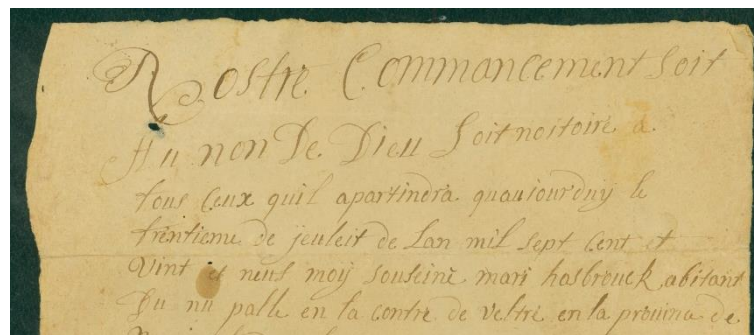 Nostre Commancement soit
Au non De Dieu Soit noitoire a
tous Ceux quil apartindra quaujourduy le
trentieme de jeuleit de Lan mil sept Cent et
Vint et neuf moy souseine mari hasbrouck abitant
Du nu palle en la contre de velstre en la provinc de